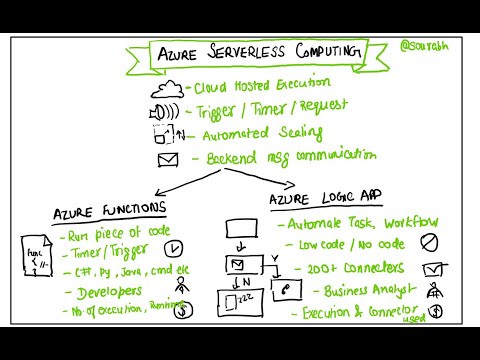 AZURE SERVERLESS COMPUTING
@sourabh
- Cloud Hosted Execution
- Trigger / Timer / Request
- Automated Scaling
- Backend msg communication
AZURE FUNCTIONS
- Run piece of code
- Timer/Trigger
- C#, Py, Java, cmd etc
- Developers
- No. of execution, Runtime
Func
{
AZURE LOGIC APP
- Automate Task, Workflow
- Low code / No code
- 200+ Connectors
- Business Analyst
- Execution & Connector used
Y
N
zzz
$
$